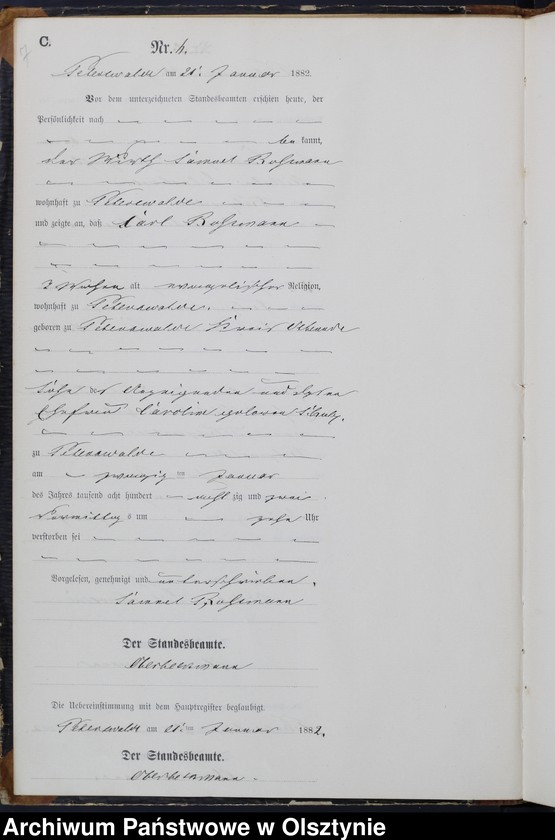 C.
Nr. 6.
Peterswalde am 21. Januar 1882.
Vor dem unterzeichneten Standesbeamten erschien heute, der
Persönlichkeit nach
be kannt,
der Wirth Samuel
wohnhaft zu Peterswalde
und zeigte an, daß Carl
Wochen alt evangelischer Religion,
wohnhaft zu Peterswalde.
geboren zu Peterswalde Kreis Osterode
Sohn des Anzeigenden und dessen
Ehefrau Caroline geborene
zu Peterswalde
am zwanzig ten Januar
des Jahres tausend acht hundert acht zig und zwei
Vormittag s um zehn Uhr
verstorben sei
Vorgelesen, genehmigt und unterschrieben.
Samuel
Der Standesbeamte.
Die Uebereinstimmung mit dem Hauptregister beglaubigt.
Peterswalde am 21. ten Januar 1882.
Der Standesbeamte.
Archiwum Państwowe w Olsztynie